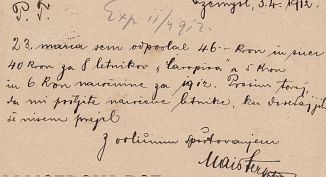 Przemyśl, 3.4.1912.
P. T.
Exp. 11/4 912.
23. marca sem odposlal 46 - Kron in sicer
40 Kron za 8 letnikov "Carniola" a 5 Kron
in 6 Kron naročnine za 1912. Prosim torej,
da mi pošljete naročene letnike, ker dosedaj jih
še nisem prejel.
Z odličnim spoštovanjem
Maister